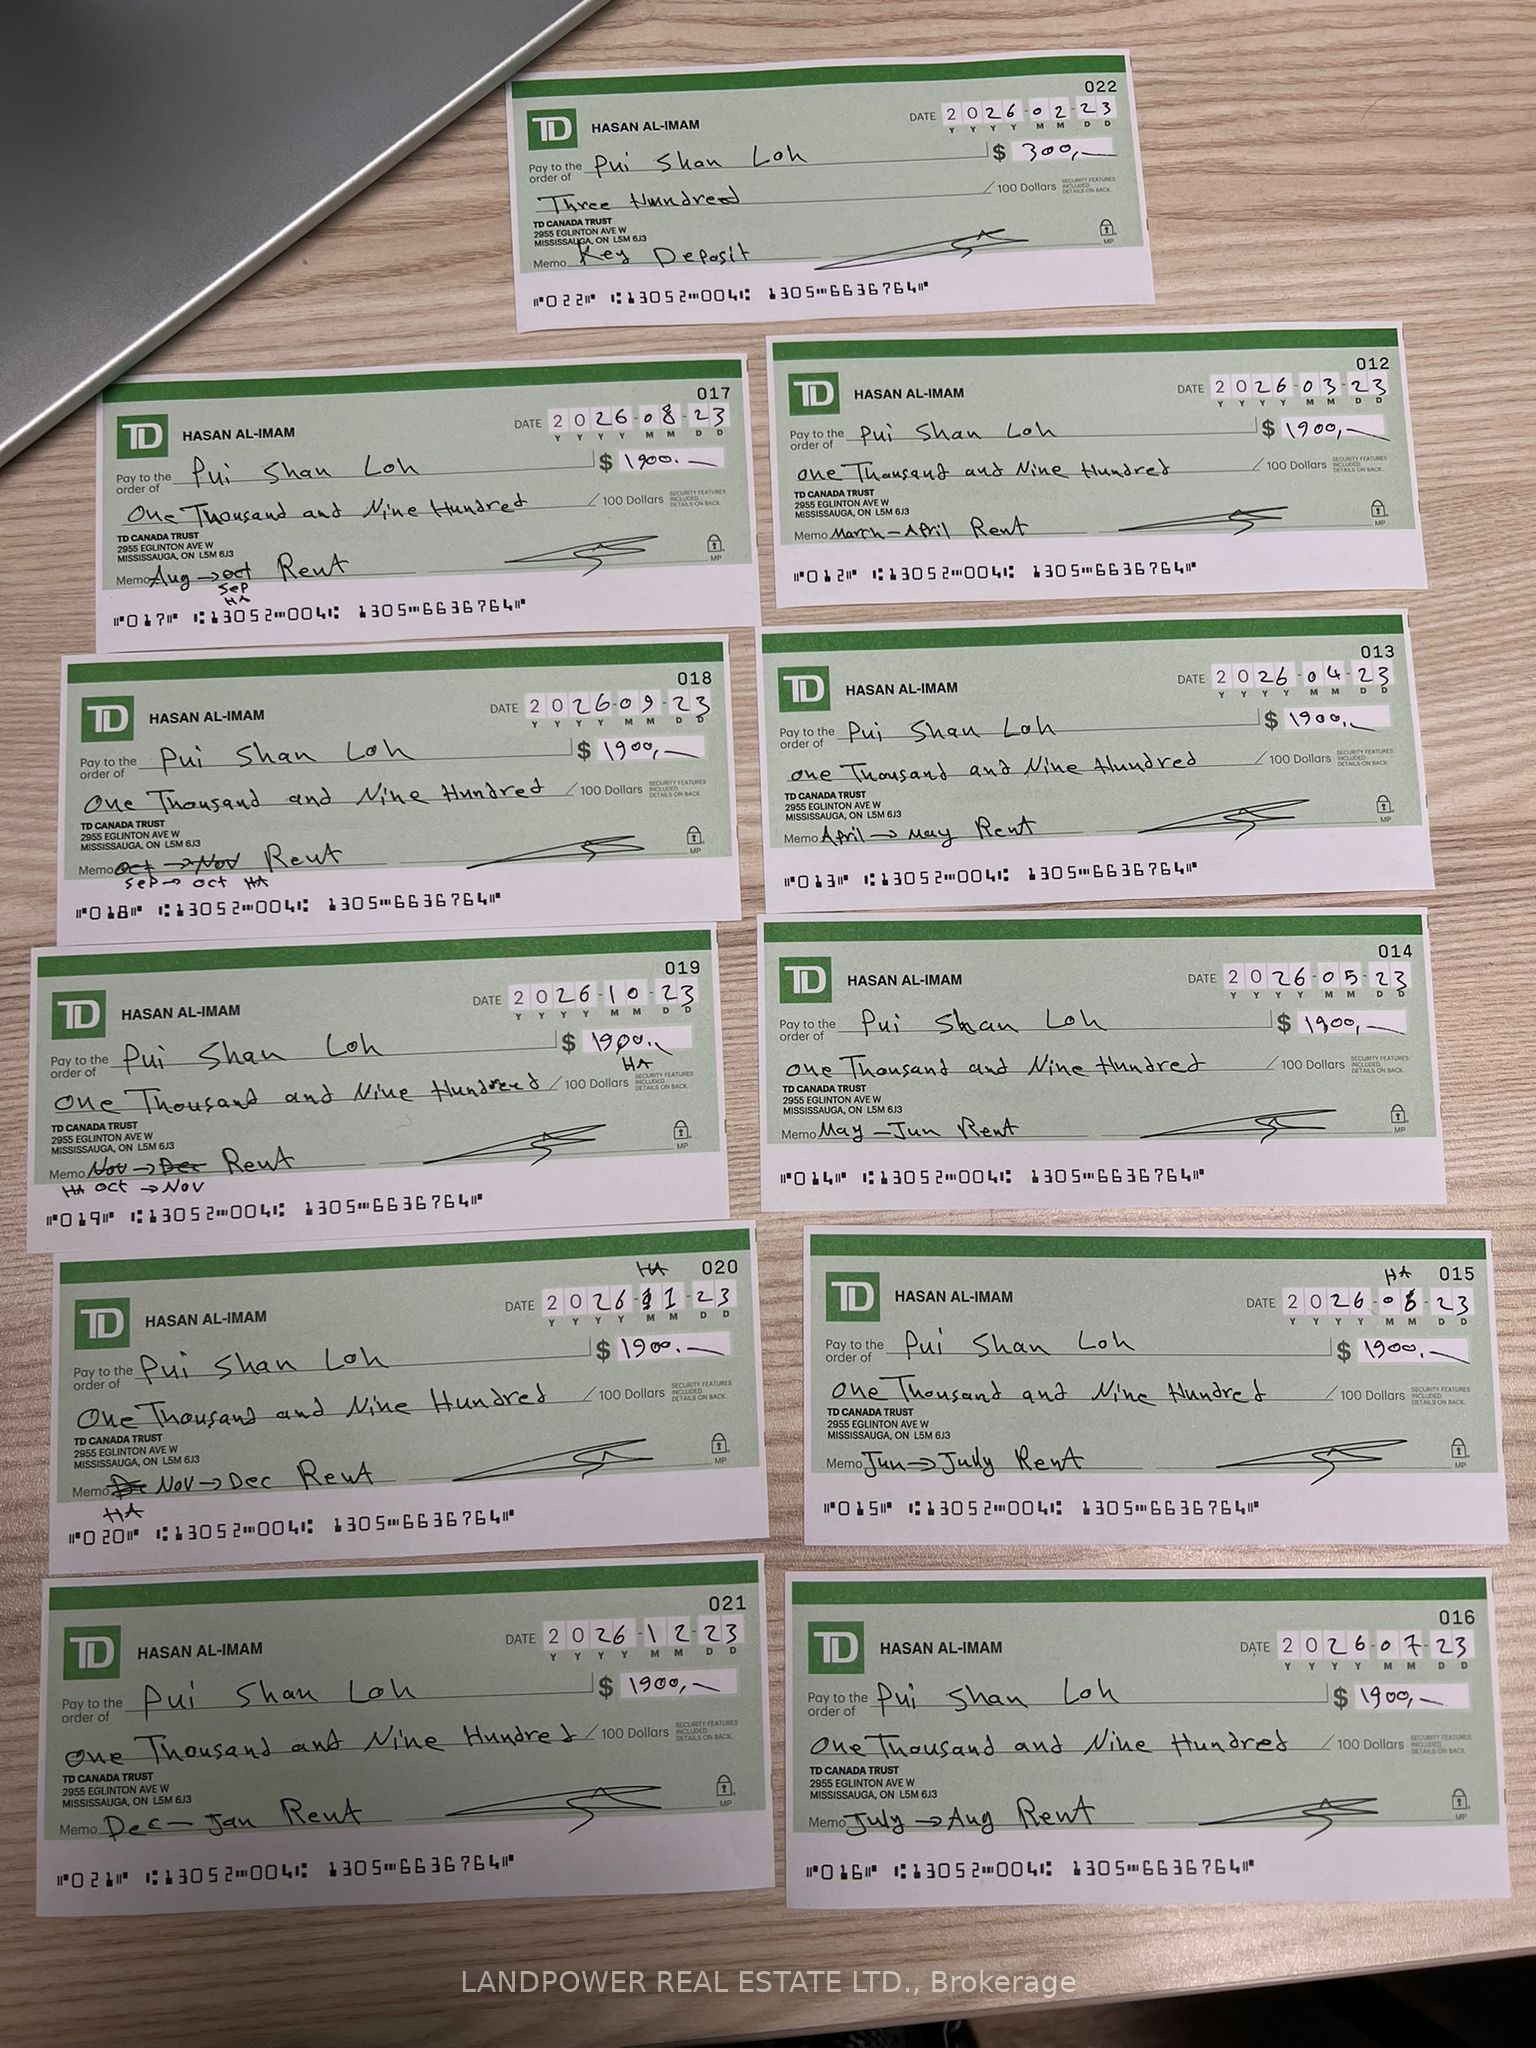 022
TD HASAN AL-IMAM DATE 2026-02-23
Y Y Y Y M M D D
Pay to the order of Pui Shan Loh $ 300,—
Three Hundred / 100 Dollars SECURITY FEATURES INCLUDED. DETAILS ON BACK.
TD CANADA TRUST
2955 EGLINTON AVE W
MISSISSAUGA, ON L5M 6J3
Memo Key Deposit MP
⑈022⑈ ⑆13052⑉004⑆ 1305⑉6636764⑈
017
TD HASAN AL-IMAM DATE 2026-08-23
Y Y Y Y M M D D
Pay to the order of Pui Shan Loh $ 1900.—
One Thousand and Nine Hundred / 100 Dollars SECURITY FEATURES INCLUDED. DETAILS ON BACK.
TD CANADA TRUST
2955 EGLINTON AVE W
MISSISSAUGA, ON L5M 6J3
Memo Aug → oct Rent MP
Sep
HA
⑈017⑈ ⑆13052⑉004⑆ 1305⑉6636764⑈
012
TD HASAN AL-IMAM DATE 2026-03-23
Y Y Y Y M M D D
Pay to the order of Pui Shan Loh $ 1900,—
one Thousand and Nine Hundred / 100 Dollars SECURITY FEATURES INCLUDED. DETAILS ON BACK.
TD CANADA TRUST
2955 EGLINTON AVE W
MISSISSAUGA, ON L5M 6J3
Memo March - April Rent MP
⑈012⑈ ⑆13052⑉004⑆ 1305⑉6636764⑈
018
TD HASAN AL-IMAM DATE 2026-09-23
Y Y Y Y M M D D
Pay to the order of Pui Shan Loh $ 1900,—
One Thousand and Nine Hundred / 100 Dollars SECURITY FEATURES INCLUDED. DETAILS ON BACK.
TD CANADA TRUST
2955 EGLINTON AVE W
MISSISSAUGA, ON L5M 6J3
Memo oct → Nov Rent MP
Sep → oct HA
⑈018⑈ ⑆13052⑉004⑆ 1305⑉6636764⑈
013
TD HASAN AL-IMAM DATE 2026-04-23
Y Y Y Y M M D D
Pay to the order of Pui Shan Loh $ 1900,—
one Thousand and Nine Hundred / 100 Dollars SECURITY FEATURES INCLUDED. DETAILS ON BACK.
TD CANADA TRUST
2955 EGLINTON AVE W
MISSISSAUGA, ON L5M 6J3
Memo April → May Rent MP
⑈013⑈ ⑆13052⑉004⑆ 1305⑉6636764⑈
019
TD HASAN AL-IMAM DATE 2026-10-23
Y Y Y Y M M D D
Pay to the order of Pui Shan Loh $ 1900.—
HA
One Thousand and Nine Hundred / 100 Dollars SECURITY FEATURES INCLUDED. DETAILS ON BACK.
TD CANADA TRUST
2955 EGLINTON AVE W
MISSISSAUGA, ON L5M 6J3
Memo Nov → Dec Rent MP
HA oct → Nov
⑈019⑈ ⑆13052⑉004⑆ 1305⑉6636764⑈
014
TD HASAN AL-IMAM DATE 2026-05-23
Y Y Y Y M M D D
Pay to the order of Pui Shan Loh $ 1900,—
One Thousand and Nine Hundred / 100 Dollars SECURITY FEATURES INCLUDED. DETAILS ON BACK.
TD CANADA TRUST
2955 EGLINTON AVE W
MISSISSAUGA, ON L5M 6J3
Memo May - Jun Rent MP
⑈014⑈ ⑆13052⑉004⑆ 1305⑉6636764⑈
HA 020
TD HASAN AL-IMAM DATE 2026-11-23
Y Y Y Y M M D D
Pay to the order of Pui Shan Loh $ 1900.—
One Thousand and Nine Hundred / 100 Dollars SECURITY FEATURES INCLUDED. DETAILS ON BACK.
TD CANADA TRUST
2955 EGLINTON AVE W
MISSISSAUGA, ON L5M 6J3
Memo Nov → Dec Rent MP
HA
⑈020⑈ ⑆13052⑉004⑆ 1305⑉6636764⑈
HA 015
TD HASAN AL-IMAM DATE 2026-06-23
Y Y Y Y M M D D
Pay to the order of Pui Shan Loh $ 1900.—
One Thousand and Nine Hundred / 100 Dollars SECURITY FEATURES INCLUDED. DETAILS ON BACK.
TD CANADA TRUST
2955 EGLINTON AVE W
MISSISSAUGA, ON L5M 6J3
Memo Jun → July Rent MP
⑈015⑈ ⑆13052⑉004⑆ 1305⑉6636764⑈
021
TD HASAN AL-IMAM DATE 2026-12-23
Y Y Y Y M M D D
Pay to the order of Pui Shan Loh $ 1900,—
One Thousand and Nine Hundred / 100 Dollars SECURITY FEATURES INCLUDED. DETAILS ON BACK.
TD CANADA TRUST
2955 EGLINTON AVE W
MISSISSAUGA, ON L5M 6J3
Memo Dec - Jan Rent MP
⑈021⑈ ⑆13052⑉004⑆ 1305⑉6636764⑈
016
TD HASAN AL-IMAM DATE 2026-07-23
Y Y Y Y M M D D
Pay to the order of Pui Shan Loh $ 1900,—
One Thousand and Nine Hundred / 100 Dollars SECURITY FEATURES INCLUDED. DETAILS ON BACK.
TD CANADA TRUST
2955 EGLINTON AVE W
MISSISSAUGA, ON L5M 6J3
Memo July → Aug Rent MP
⑈016⑈ ⑆13052⑉004⑆ 1305⑉6636764⑈
LANDPOWER REAL ESTATE LTD., Brokerage